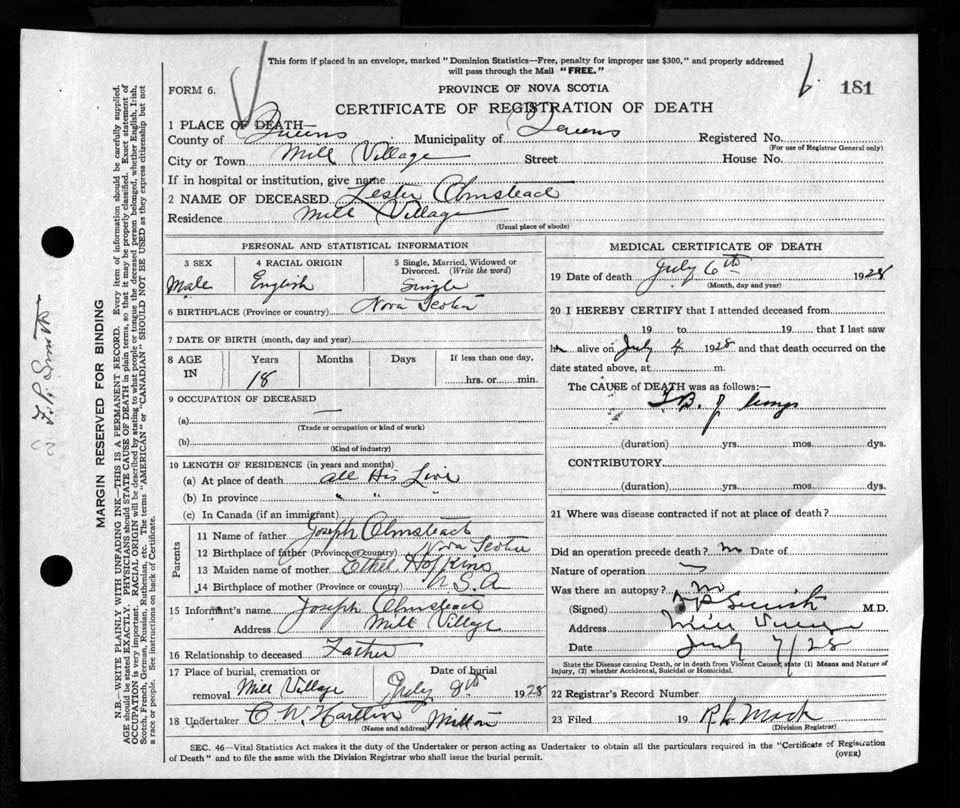 This form if placed in an envelope, marked "Dominion Statistics—Free, penalty for improper use $300," and properly addressed
will pass through the Mail "FREE."
FORM 6.
PROVINCE OF NOVA SCOTIA
181
CERTIFICATE OF REGISTRATION OF DEATH
1 PLACE OF DEATH—
County of Queens Municipality of Queens Registered No.
(For use of Registrar General only)
City or Town Mill Village Street House No.
If in hospital or institution, give name
2 NAME OF DECEASED Lester Olmstead
Residence Mill Village
(Usual place of abode)
PERSONAL AND STATISTICAL INFORMATION
3 SEX
Male
4 RACIAL ORIGIN
English
5 Single, Married, Widowed or
Divorced. (Write the word)
Single
6 BIRTHPLACE (Province or country) Nova Scotia
7 DATE OF BIRTH (month, day and year)
8 AGE
IN
Years
18
Months
Days
If less than one day,
hrs. or min.
9 OCCUPATION OF DECEASED
(a) —
(Trade or occupation or kind of work)
(b)
(Kind of industry)
10 LENGTH OF RESIDENCE (in years and months)
(a) At place of death all His Live
(b) In province " " "
(c) In Canada (if an immigrant)
Parents
11 Name of father Joseph Olmstead
12 Birthplace of father (Province or country) Nova Scotia
13 Maiden name of mother Ethel Hopkins
14 Birthplace of mother (Province or country) U.S.A
15 Informant's name Joseph Olmstead
Address Mill Village
16 Relationship to deceased Father
17 Place of burial, cremation or
removal Mill Village
Date of burial
July 8th 1928
18 Undertaker C. W. Milton
(Name and address)
MEDICAL CERTIFICATE OF DEATH
19 Date of death July 6th 1928
(Month, day and year)
20 I HEREBY CERTIFY that I attended deceased from
19 to 19 that I last saw
h alive on July 4 1928 and that death occurred on the
date stated above, at m.
The CAUSE of DEATH was as follows:—
T.B. of lungs
(duration) yrs. mos. dys.
CONTRIBUTORY
(duration) yrs. mos. dys.
21 Where was disease contracted if not at place of death?
Did an operation precede death? no Date of
Nature of operation
Was there an autopsy? no
(Signed) Smith M.D.
Address Mill Village
Date July 7/28
State the Disease causing Death, or in death from Violent Causes, state (1) Means and Nature of
Injury, (2) whether Accidental, Suicidal or Homicidal.
22 Registrar's Record Number
23 Filed 19 Mack
(Division Registrar)
SEC. 46—Vital Statistics Act makes it the duty of the Undertaker or person acting as Undertaker to obtain all the particulars required in the "Certificate of Registration
of Death" and to file the same with the Division Registrar who shall issue the burial permit.
(OVER)
MARGIN RESERVED FOR BINDING
N.B.—WRITE PLAINLY WITH UNFADING INK—THIS IS A PERMANENT RECORD. Every item of information should be carefully supplied.
AGE should be stated EXACTLY. PHYSICIANS should STATE CAUSE OF DEATH in plain terms, so that it may be properly classified. Exact statement of
OCCUPATION is very important. RACIAL ORIGIN will be described by stating to what people or tongue the deceased person belonged, whether English, Irish,
Scotch, French, German, Russian, Ruthenian, etc. The terms "AMERICAN" or "CANADIAN" SHOULD NOT BE USED as they express citizenship but not
a race or people. See instructions on back of Certificate.